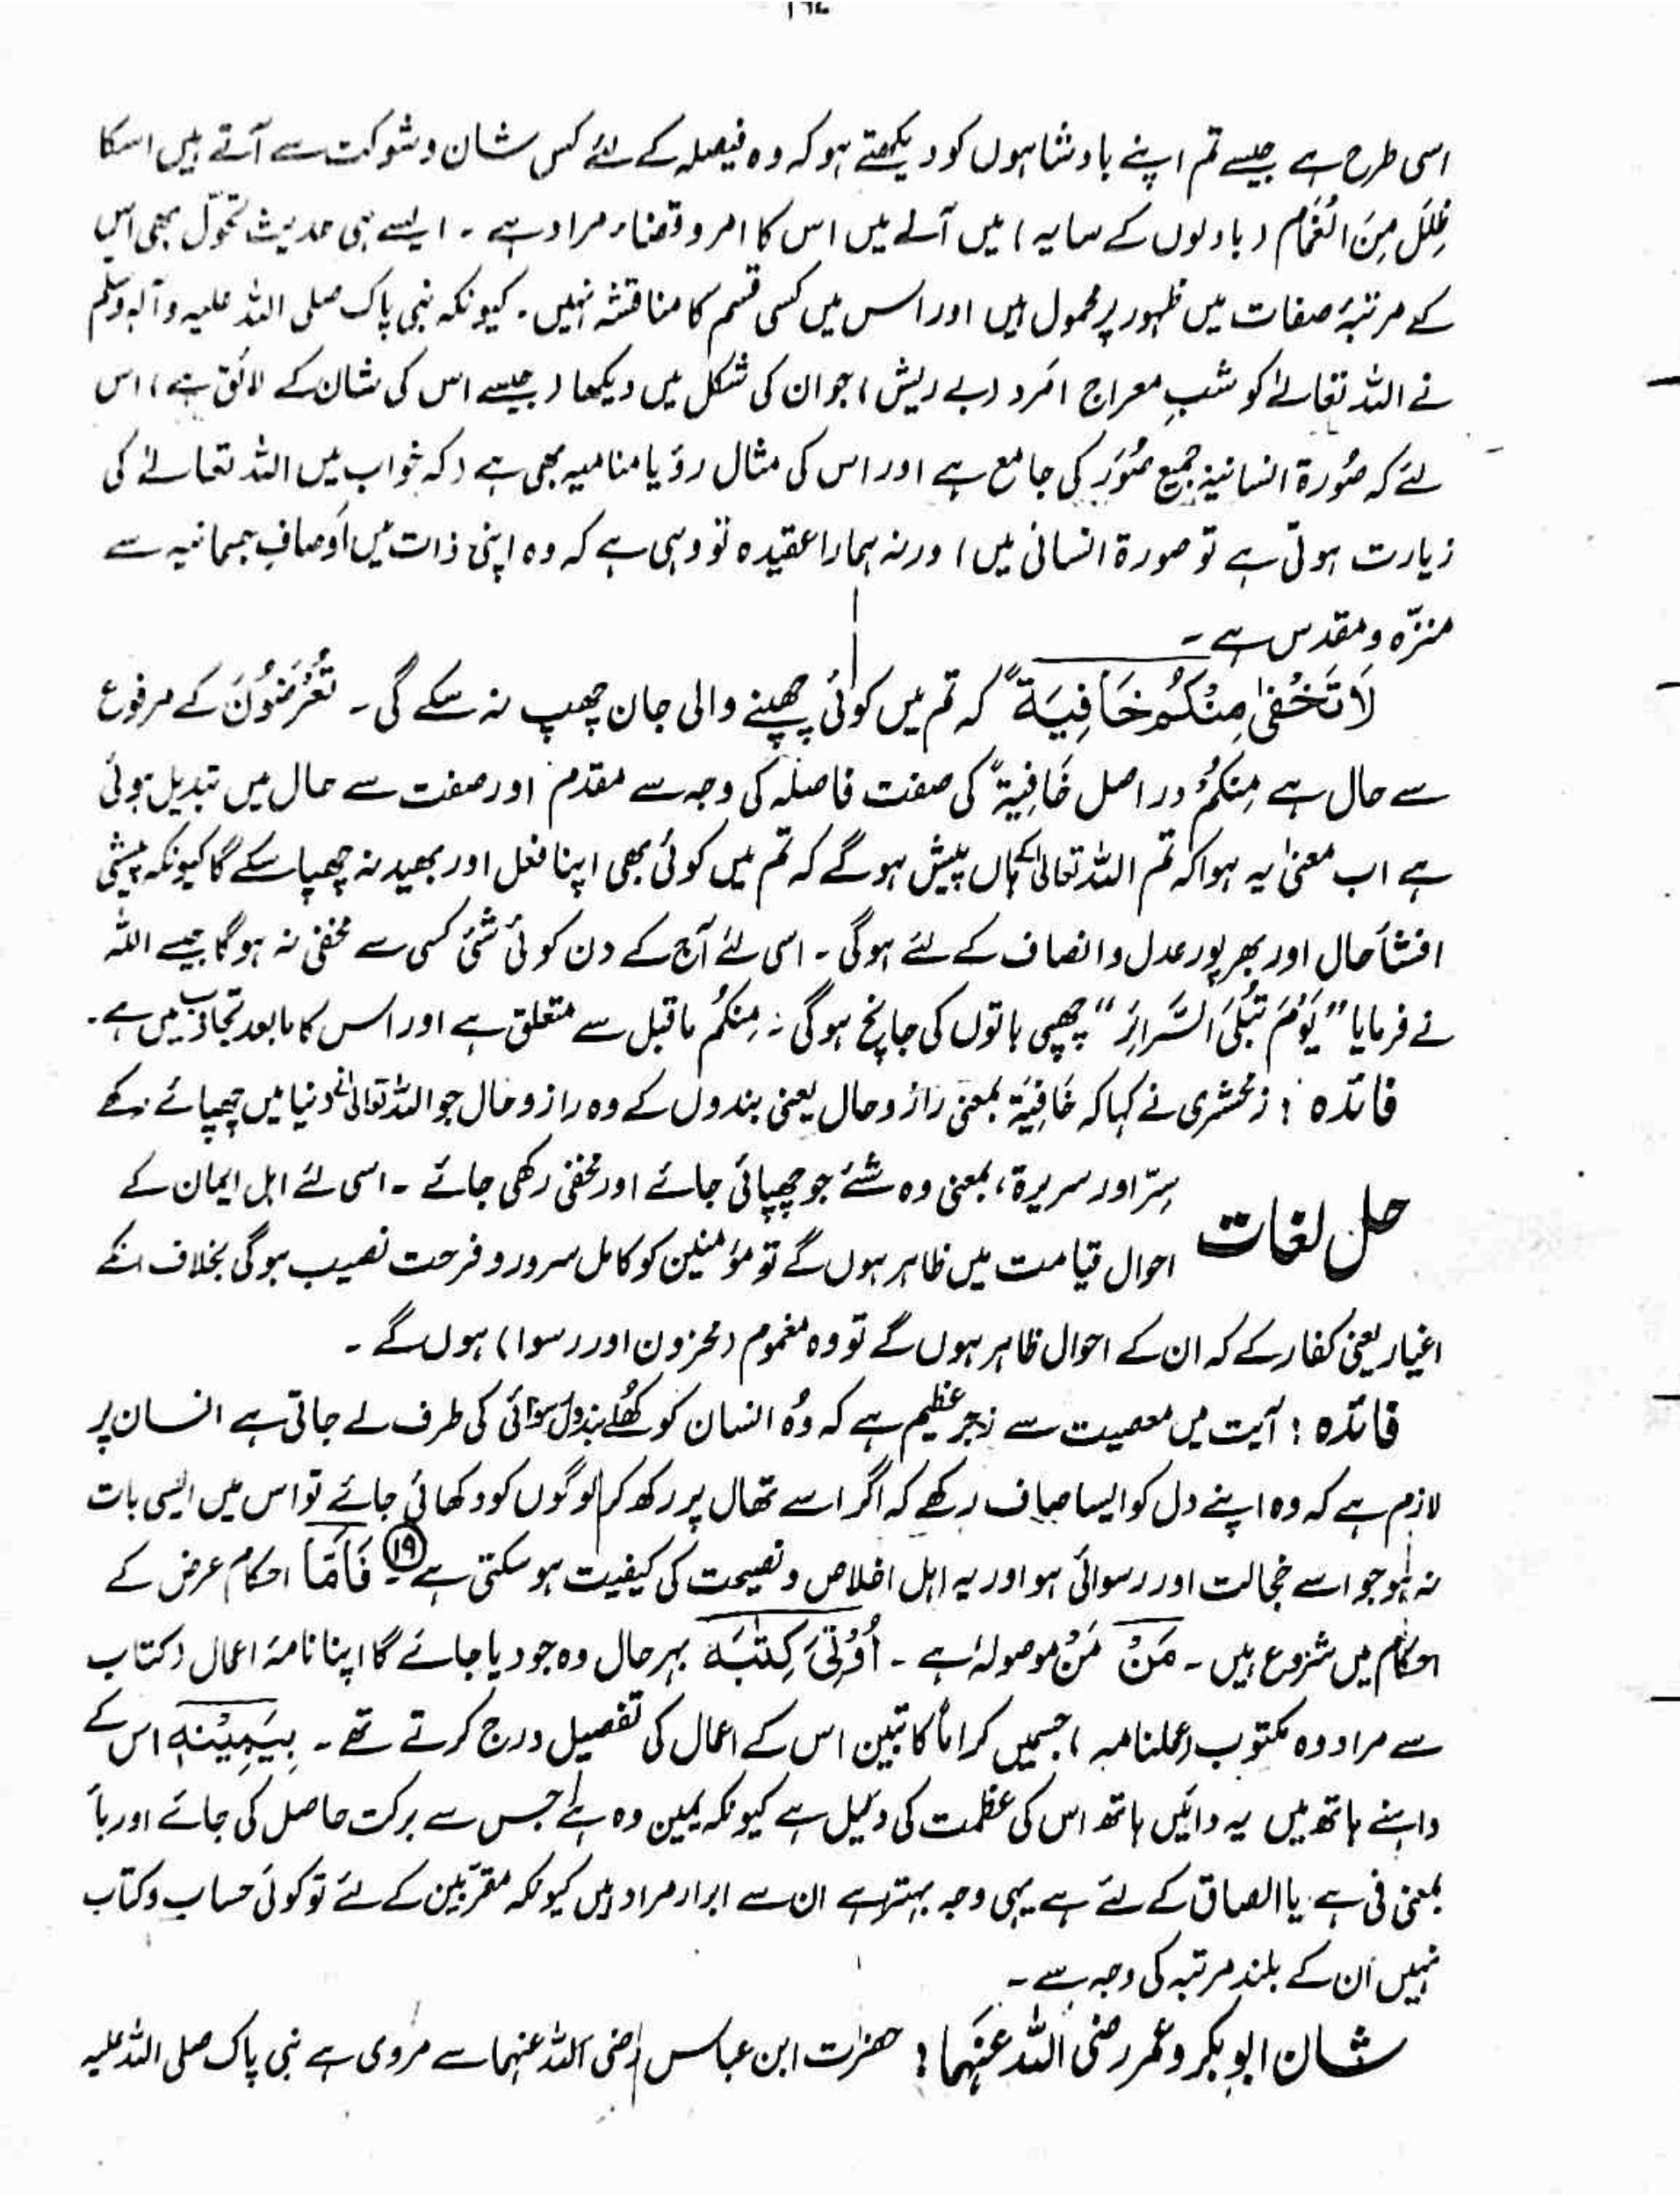 اسی طرح ہے جیسے تم اپنے بادشاہوں کو دیکھتے ہو کہ وہ فیصلہ کے لئے کس شان و شوکت سے آتے ہیں اسکا
ظِلَلٍ مِنَ الْغَمَام (بادلوں کے سایہ) میں آنے میں اس کا امر و قضاء مراد ہے ۔ ایسے ہی حدیث تحوّل بھی اس
کے مرتبۂ صفات میں ظہور پر محمول ہیں اور اس میں کسی قسم کا مناقشہ نہیں ۔ کیونکہ نبی پاک صلی اللہ علیہ وآلہ وسلم
نے اللہ تعالےٰ کو شبِ معراج امَرد (بے ریش) جوان کی شکل میں دیکھا (جیسے اس کی شان کے لائق ہے) اس
لئے کہ صُورۃ انسانیۃ جمیع صُوَر کی جامع ہے اور اس کی مثال رؤیا منامیہ بھی ہے (کہ خواب میں اللہ تعالےٰ کی
زیارت ہوتی ہے تو صورۃ انسانی میں) ورنہ ہمارا عقیدہ تو وہی ہے کہ وہ اپنی ذات میں اَوصافِ جسمانیہ سے
منزّہ و مقدس ہے ۔
لَا تَخْفٰی مِنْکُمْ خَافِیَۃٌ کہ تم میں کوئی چھپنے والی جان چھپ نہ سکے گی ۔ تُعْرَضُوْنَ کے مرفوع
سے حال ہے مِنکُمْ در اصل خَافِیَۃٌ کی صفت فاصلہ کی وجہ سے مقدم اور صفت سے حال میں تبدیل ہوئی
ہے اب معنیٰ یہ ہوا کہ تم اللہ تعالیٰ کے ہاں پیش ہو گے کہ تم میں کوئی بھی اپنا فعل اور بھید نہ چھپا سکے گا کیونکہ پیشی
افشأ حال اور بھرپور عدل و انصاف کے لئے ہوگی ۔ اسی لئے آج کے دن کوئی شئ کسی سے مخفی نہ ہوگا جیسے اللہ
نے فرمایا ” یَوْمَ تُبْلَی السَّرَائِرُ “ چھپی باتوں کی جانچ ہوگی ۔ مِنکُم ماقبل سے متعلق ہے اور اس کا مابعد تجاذب میں ہے ۔
فائدہ : زمخشری نے کہا کہ خَافِیَۃ بمعنی راز و حال یعنی بندوں کے وہ راز و حال جو اللہ تعالیٰ نے دنیا میں چھپائے رکھے
حل لغات سِرّ اور سریرۃ، بمعنی وہ شئے جو چھپائی جائے اور مخفی رکھی جائے ۔ اسی لئے اہل ایمان کے
احوال قیامت میں ظاہر ہوں گے تو مؤمنین کو کامل سرور و فرحت نصیب ہوگی بخلاف انکے
اغیار یعنی کفار کے کہ ان کے احوال ظاہر ہوں گے تو وہ مغموم (محزون اور رسوا) ہوں گے ۔
فائدہ : آیت میں معصیت سے زجر عظیم ہے کہ وُہ انسان کو کُھلے بندوں رسوائی کی طرف لے جاتی ہے انسان پر
لازم ہے کہ وہ اپنے دل کو ایسا صاف رکھے کہ اگر اسے تھال پر رکھ کر لوگوں کو دکھائی جائے تو اس میں ایسی بات
نہ ہو جو اسے خجالت اور رسوائی ہو اور یہ اہل اخلاص و نصیحت کی کیفیت ہو سکتی ہے ۔ ⑲ فَاَمَّا احکام عرض کے
احکام میں شروع ہیں ۔ مَنْ مَنْ موصولہ ہے ۔ اُوْتِیَ کِتٰبَہٗ بہرحال وہ جو دیا جائے گا اپنا نامۂ اعمال (کتاب
سے مراد وہ مکتوب (عملنامہ) جسمیں کراماً کاتبین اس کے اعمال کی تفصیل درج کرتے تھے ۔ بِیَمِیْنِہٖ اس کے
داہنے ہاتھ میں یہ دائیں ہاتھ اس کی عظمت کی دلیل ہے کیونکہ یمین وہ ہے جس سے برکت حاصل کی جائے اور بأ
بمعنی فی ہے یا الصاق کے لئے ہے یہی وجہ بہتر ہے ان سے ابرار مراد ہیں کیونکہ مقرّبین کے لئے تو کوئی حساب و کتاب
نہیں اُن کے بلند مرتبہ کی وجہ سے ۔
شان ابوبکر و عمر رضی اللہ عنہما : حضرت ابن عباس رضی اللہ عنہما سے مروی ہے نبی پاک صلی اللہ علیہ